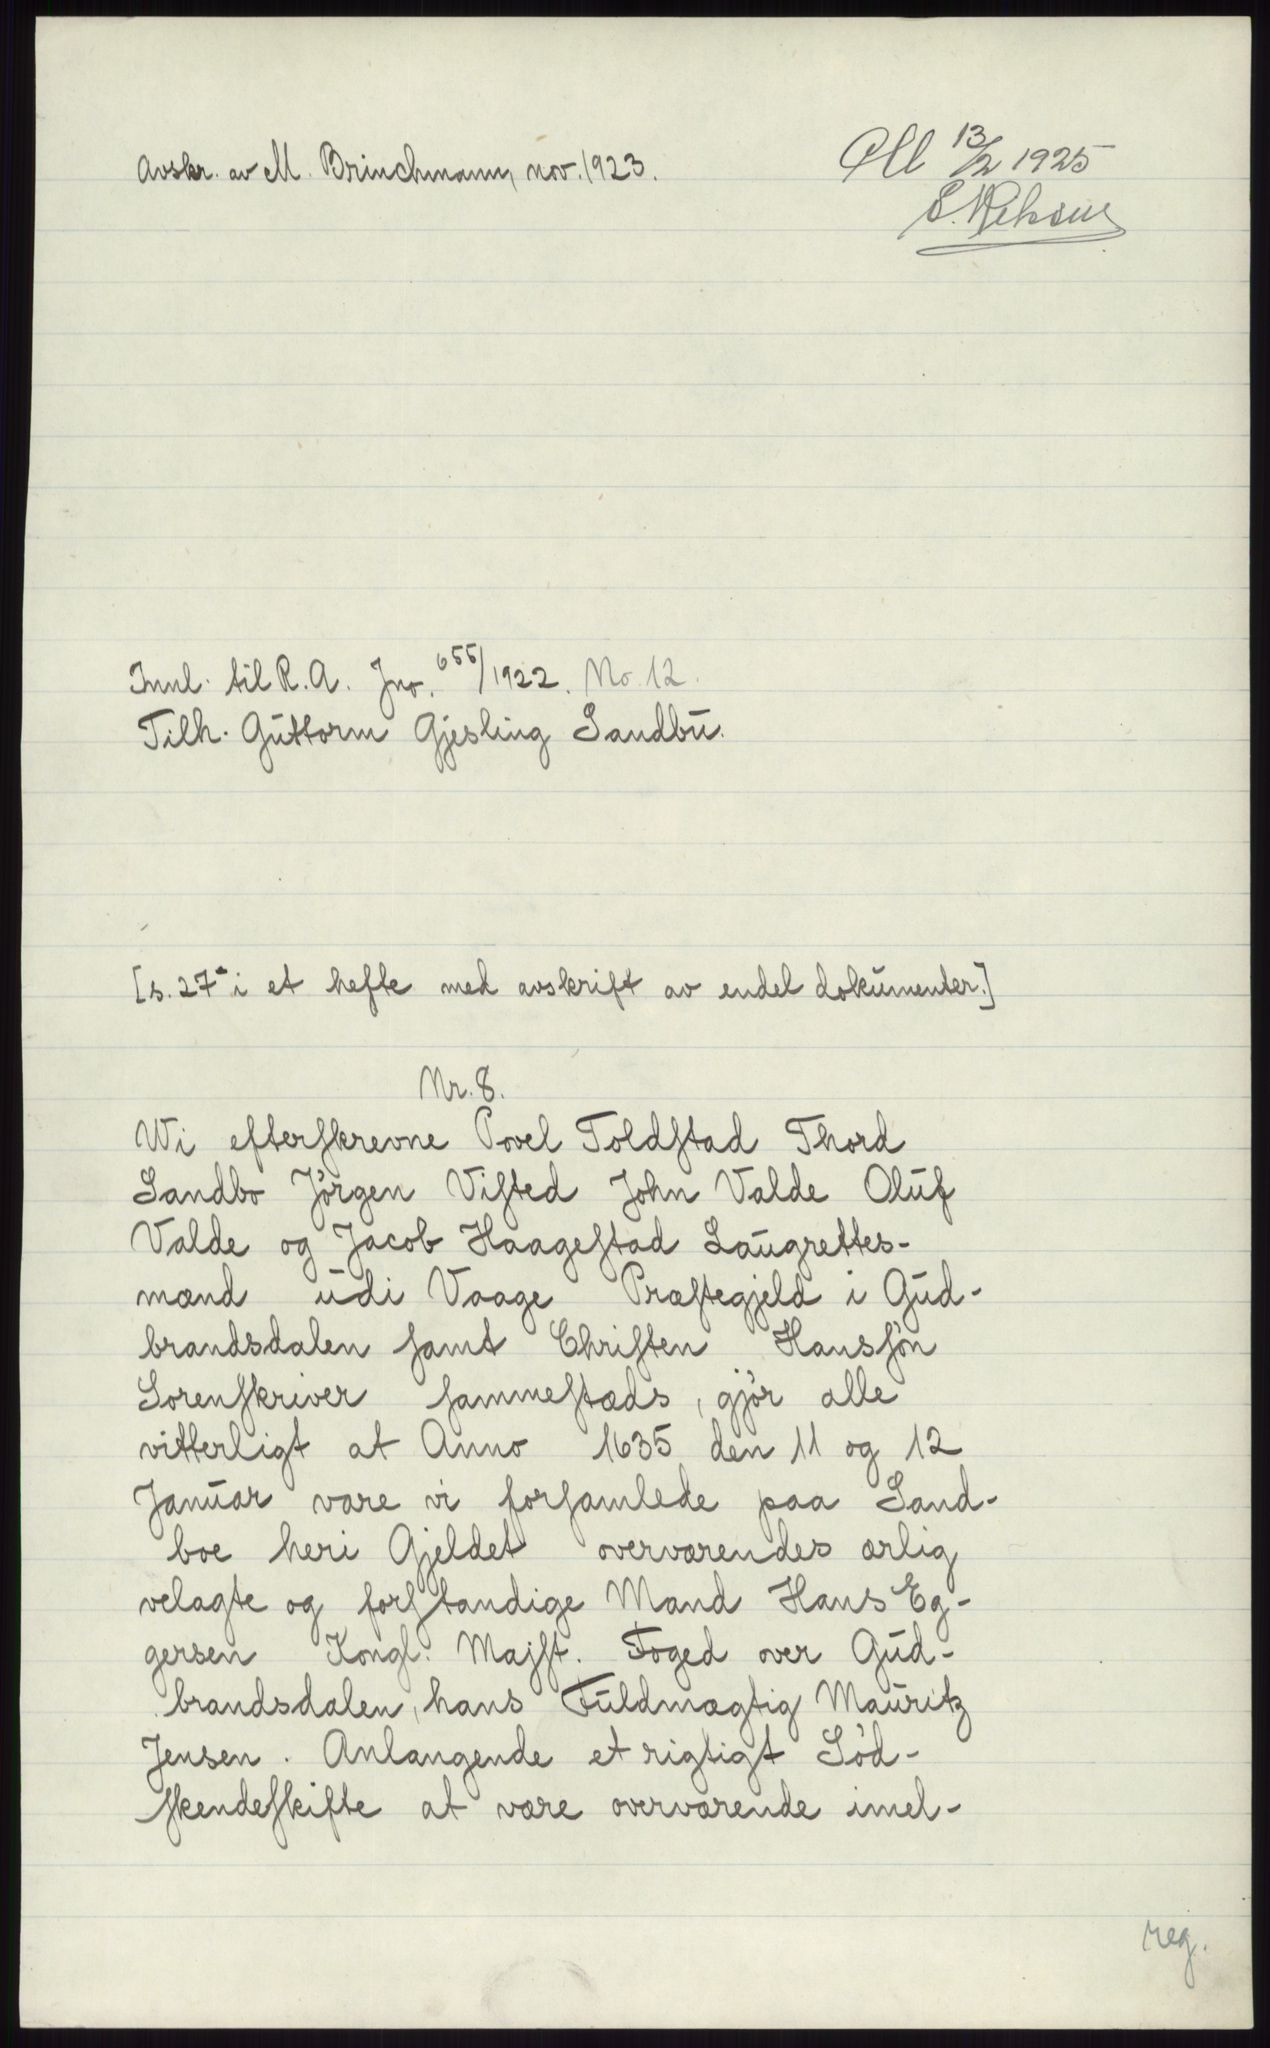 Avskr. av M. Brinchmann, nov. 1923.
13/2 1925
Innl. til R.A. Jno. 655/1922. No. 12.
Tilh. Guttorm Gjesling Sandbu.
[s. 27a i et hefte med avskrift av endel dokumenter.]
Nr. 8.
Wi efterskrevne Povel Toldstad Thord
Sandbo Jörgen Visted John Valde Oluf
Valde og Jacob Haagestad Laugrettes-
mænd udi Vaage Præstegjeld i Gud-
brandsdalen samt Christen Hanssön
Sorenskriver sammestæds, gjör alle
vitterligt at Anno 1635 den 11 og 12
Januar vare vi forsamlede paa Sand-
boe heri Gjeldet overværendes ærlig
velagte og forstandige Mand Hans Eg-
gersen Kongl. Majst. Foged over Gud-
brandsdalen, hans Fuldmægtig Mauritz
Jensen. Anlangende et rigtigt Söd-
skendeskifte at være overværende imel-
reg.